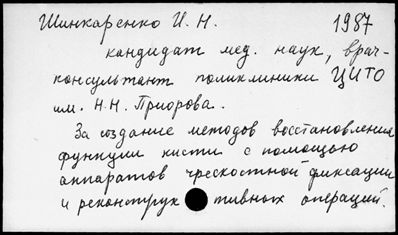 Шинкаренко И. Н. 1987
кандидат мед. наук, врач-
консультант поликлиники ЦИТО
им. Н.Н. Приорова.
За создание методов восстановления
функции кисти с помощью
аппаратов чрескостной фиксации
и реконструк тивных операций.